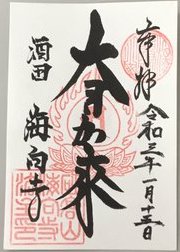 奉拝
令和三年一月十三日
大日如来
酒田
海向寺